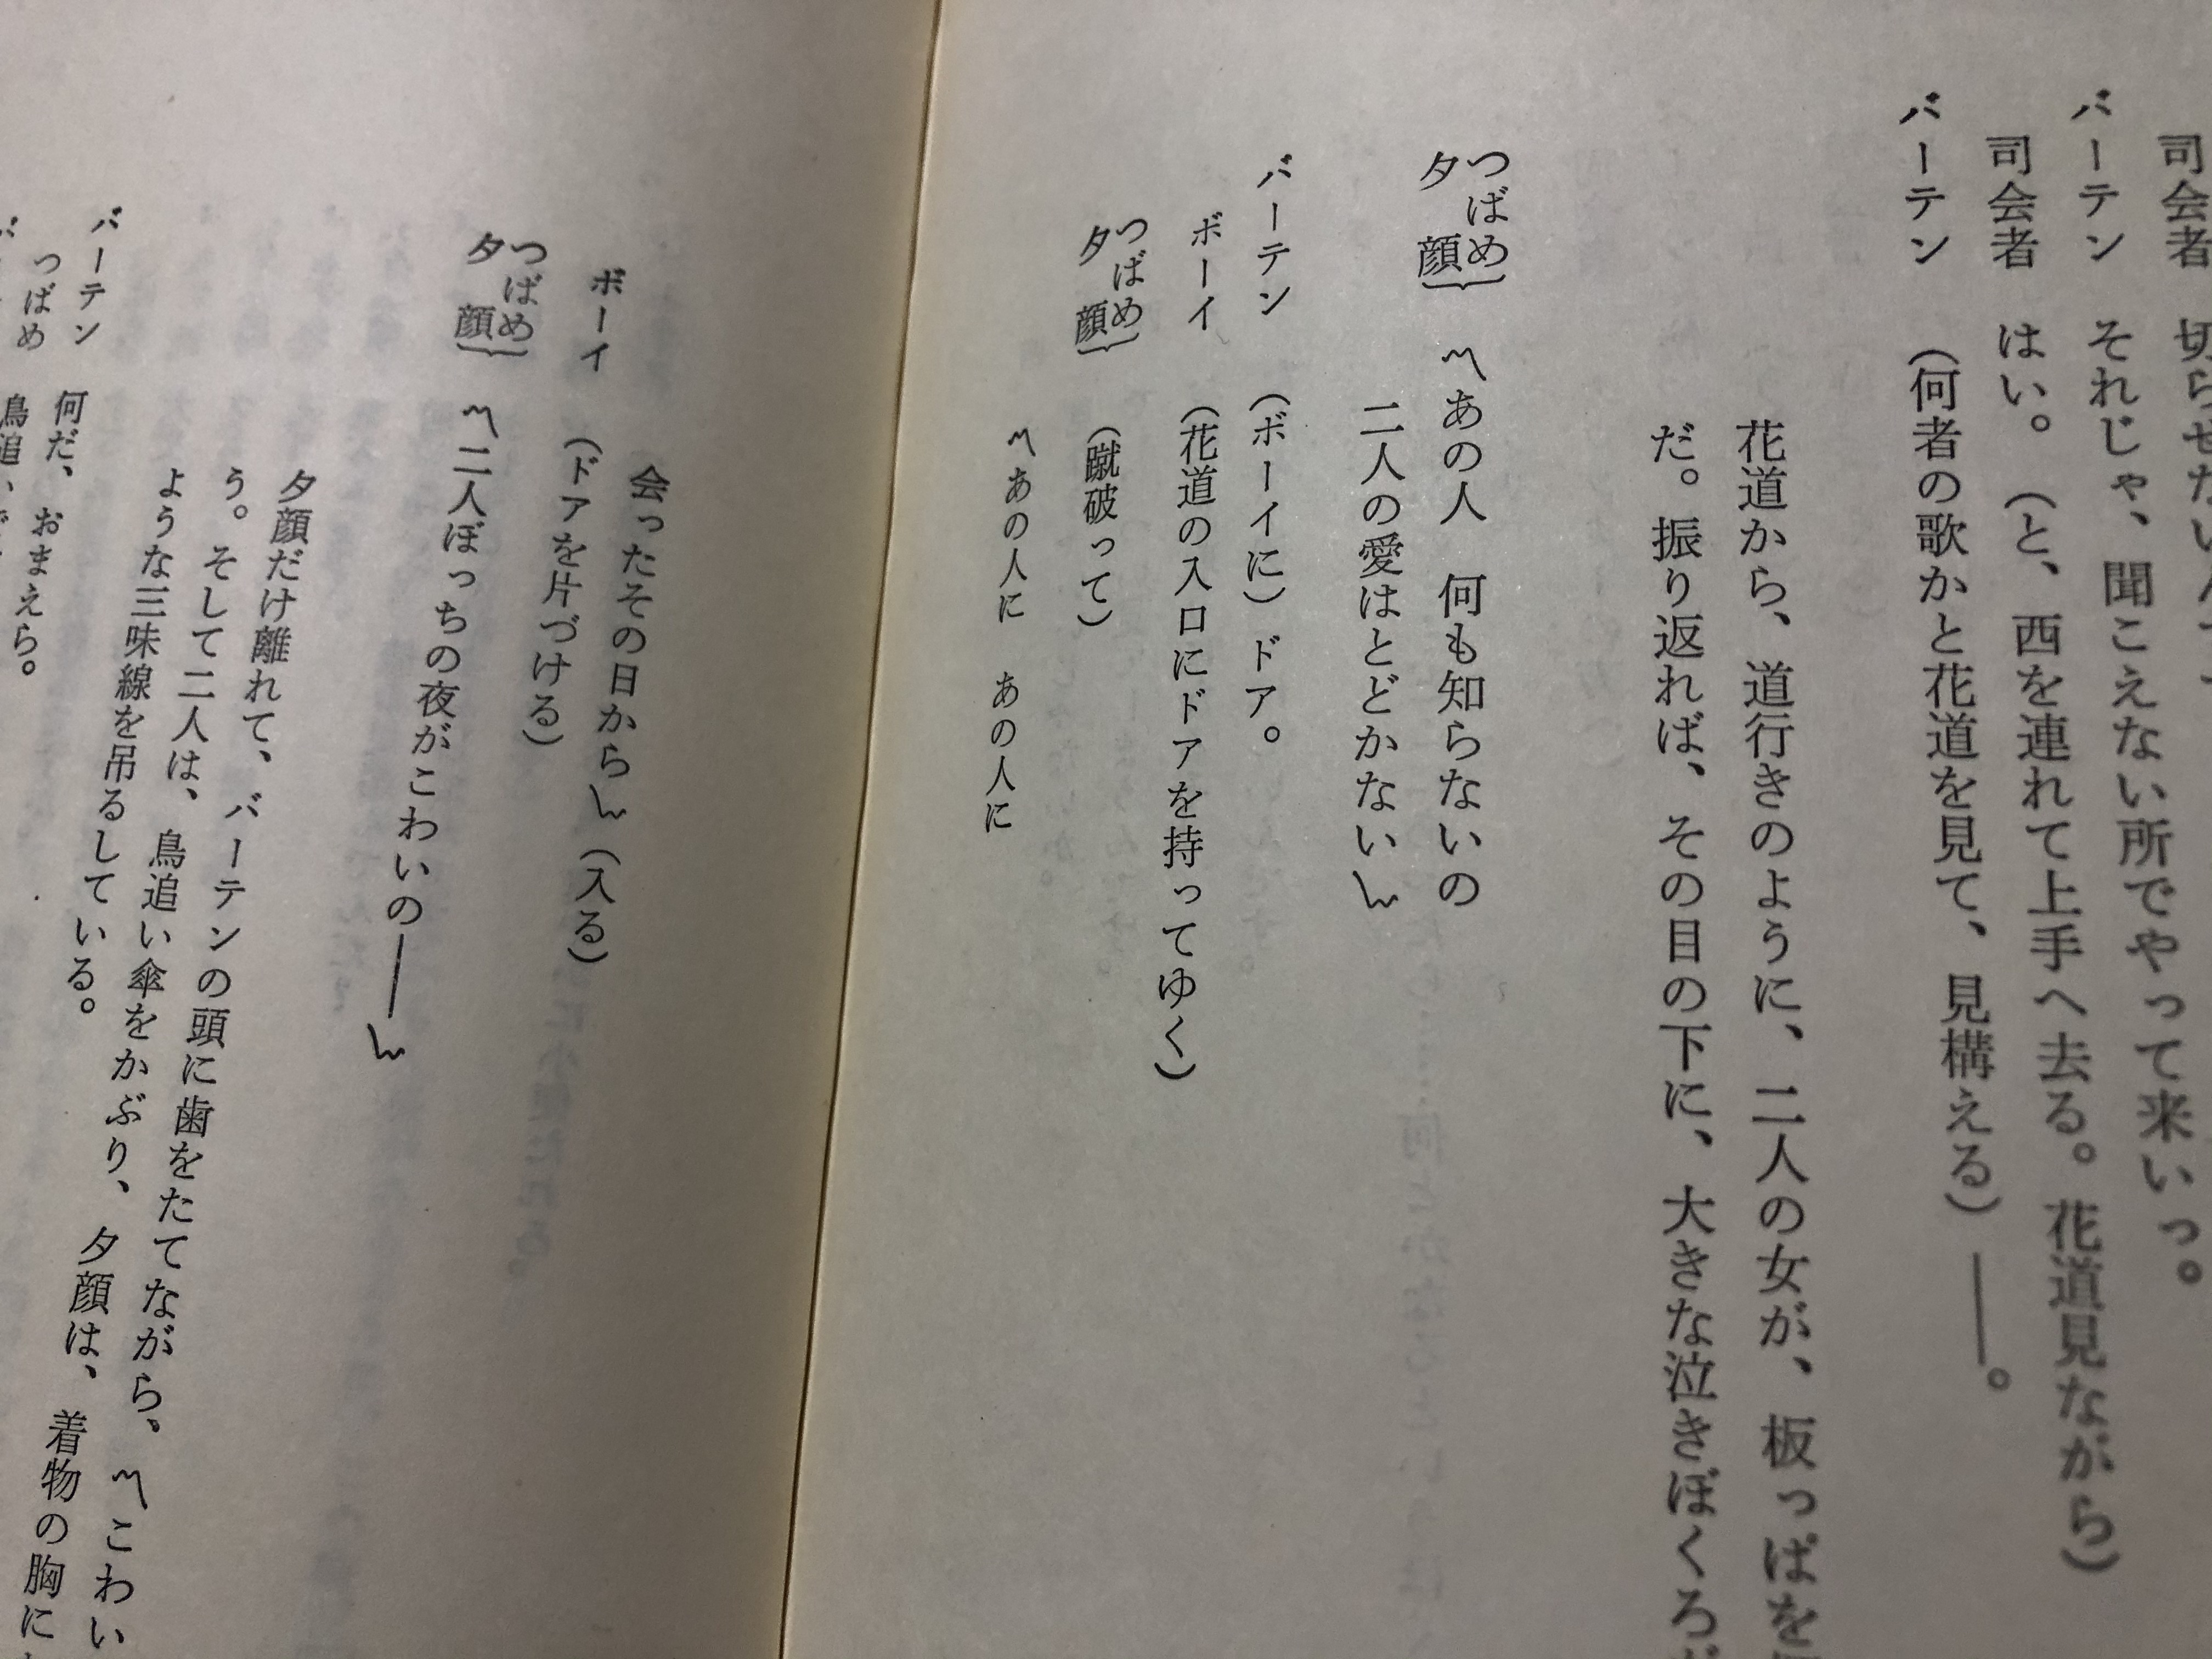 司会者　切らせたい
バーテン　それじゃ、聞こえない所でやって来いっ。
司会者　はい。（と、西を連れて上手へ去る。花道見ながら）
バーテン　（何者の歌かと花道を見て、見構える）――。
花道から、道行きのように、二人の女が、板っぱを
だ。振り返れば、その目の下に、大きな泣きぼくろ
つばめ
夕顔　〽あの人　何も知らないの
二人の愛はとどかない〽
バーテン　（ボーイに）ドア。
ボーイ　（花道の入口にドアを持ってゆく）
つばめ
夕顔　（蹴破って）
〽あの人に　あの人に
会ったその日から〽（入る）
ボーイ　（ドアを片づける）
つばめ
夕顔　〽二人ぼっちの夜がこわいの――〽
夕顔だけ離れて、バーテンの頭に歯をたてながら、〽こわい
う。そして二人は、鳥追い傘をかぶり、夕顔は、着物の胸に
ような三味線を吊るしている。
バーテン　何だ、おまえら。
つばめ　鳥追い